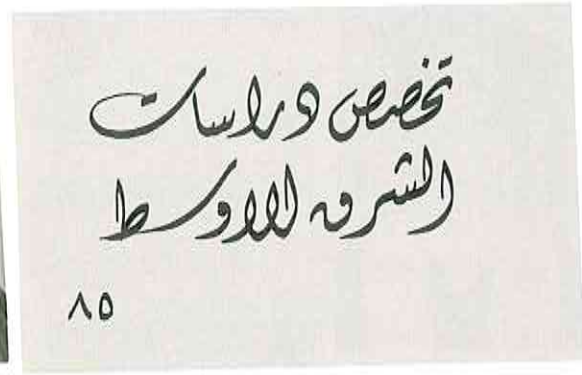 تخصص دراسات
الشرق الاوسط
٨٥